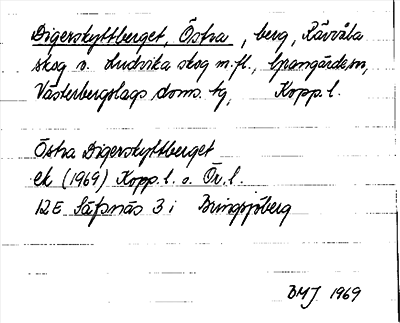 Digerskyttberget, Östra, berg, Rävvåla
skog o. Ludvika skog m.fl., Grangärde sn,
Västerbergslags doms. tg, Kopp. l.
Östra Digerskyttberget
ek (1969) Kopp. l. o. Ör. l.
12E Säfsnäs 3 i Bringsjöberg
BMJ 1969